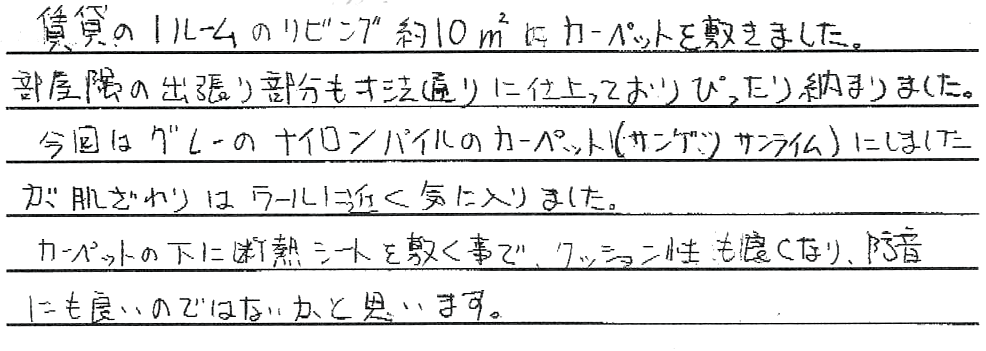 賃貸の1ルームのリビング約10㎡にカーペットを敷きました。
部屋隅の出張り部分も寸法通りに仕上っておりぴったり納まりました。
今回はグレーのナイロンパイルのカーペット(サンゲツ サンライム)にしました
が肌ざわりはウールに近く気に入りました。
カーペットの下に断熱シートを敷く事で、クッション性も良くなり、防音
にも良いのではないかと思います。